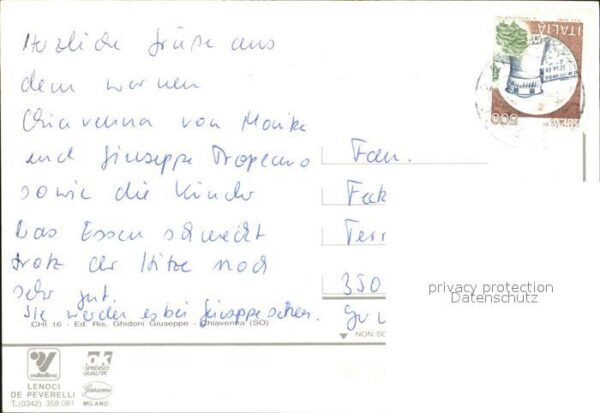 Herzliche Grüße aus
dem warmen
Chiavenna von Monika
und Giuseppe Tropeano
sowie die Kinder
Das Essen schmeckt
trotz der Hitze noch
sehr gut.
Sie werden es bei Giuseppe sehen.
CHI 16 - Ed. Ris. Ghidoni Giuseppe - Chiavenna (SO)
valtellina
LENOCI
DE PEVERELLI
T.(0342) 358-081
SERVIZI
QUALITÀ
Garami
MILANO
ITALIA
500
Fam.
Feck
Terr
350
NON SC
privacy protection
Datenschutz